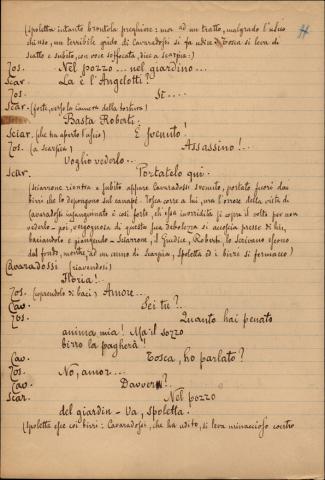 (Spoletta intanto brontola preghiere: ma ad un tratto, malgrado l'uscio
chiuso, un terribile grido di Cavaradossi si fa udire: Tosca si leva di
scatto e subito, con voce soffocata, dice a Scarpia:)
Tos. Nel pozzo... nel giardino...
Scar. Là è l'Angelotti?
Tos. Sì...
Scar. (forte, verso la camera della tortura)
Basta Roberti.
Sciar. (che ha aperto l'uscio) È svenuto!
Tos. (a Scarpia) Assassino!..
Voglio vederlo..
Scar. Portatelo qui.
Sciarrone rientra e subito appare Cavaradossi svenuto, portato fuori dai
birri che lo depongono sul canapè. Tosca corre a lui, ma l'orrore della vista di
Cavaradossi insanguinato è così forte, ch'essa inorridita si copre il volto per non
vederlo - poi, vergognosa di questa sua debolezza si accascia presse di lui,
baciandolo e piangendo - Sciarrone, il Giudice, Roberti, lo scrivano escono
dal fondo, mentre, ad un cenno di Scarpia, Spoletta ed i birri si fermano)
Cavaradossi (riavendosi)
Floria!..
Tos. (coprendolo di baci) Amore...
Cav. Sei tu?..
Tos. Quanto hai penato
anima mia! Ma il sozzo
birro la pagherà!
Cav. Tosca, ho parlato?
Tos. No, amor...
Cav. Davver?..
Scar. Nel pozzo
del giardin - Va, Spoletta!
(Spoletta esce coi birri: Cavaradossi, che ha udito, si leva minaccioso contro